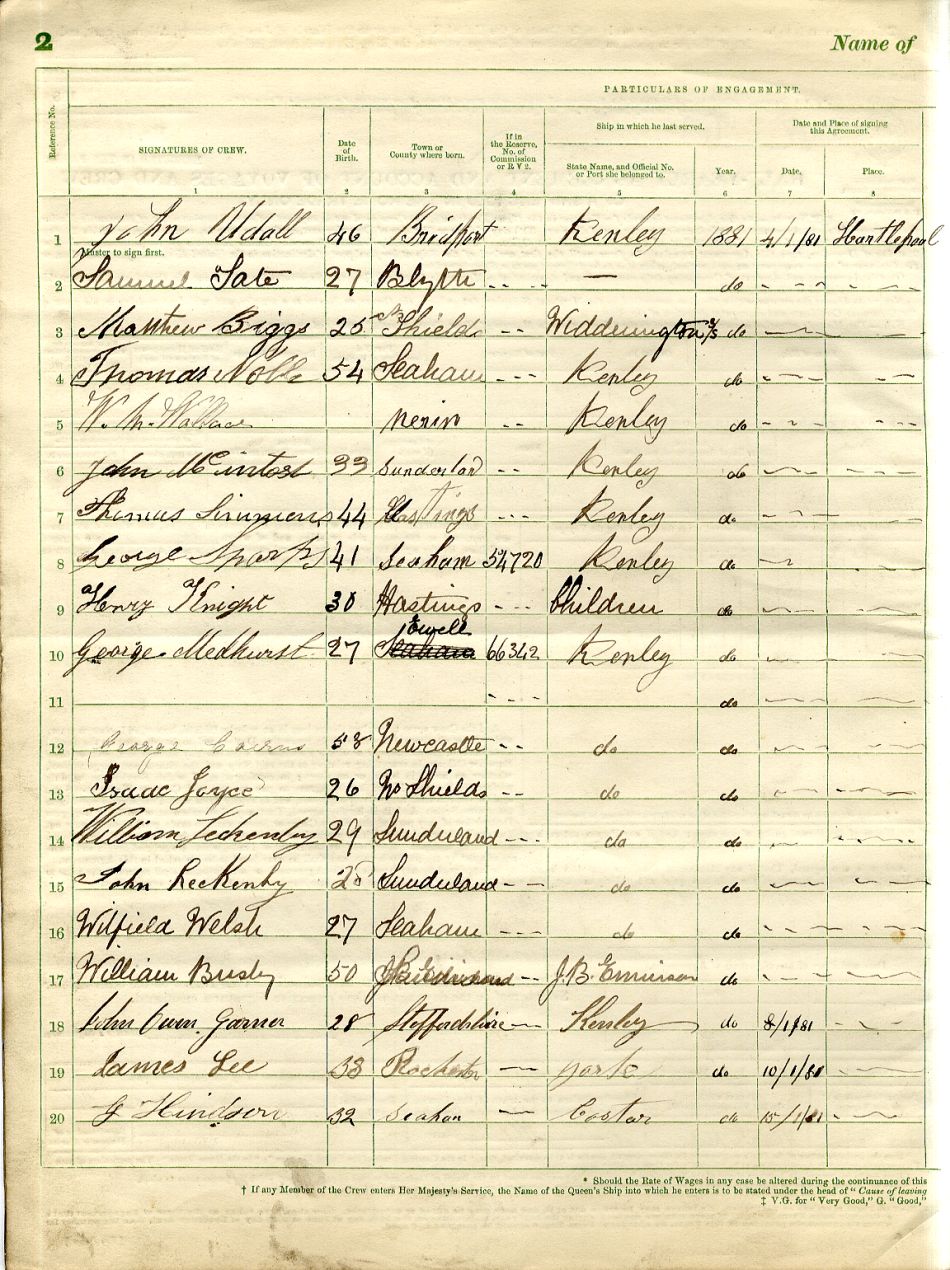 2 Name of
PARTICULARS OF ENGAGEMENT.
Reference No.
SIGNATURES OF CREW.
Date of Birth.
Town or County where born.
If in the Reserve, No. of Commission or R V 2.
Ship in which he last served.
Date and Place of signing this Agreement.
State Name, and Official No. or Port she belonged to.
Year.
Date.
Place.
1 2 3 4 5 6 7 8
1 John Udall 46 Bridport Kenley 1881 4/1/81 Hartlepool
Master to sign first.
2 Samuel Tate 27 Blyth - - — do - - - - - -
3 Matthew Biggs 25 Shields - - Widdrington s/s do
4 Thomas Noble 54 Seaham - - Kenley do - - - - -
5 W. M. Wallace - - Kenley do - - - - -
6 John McIntosh 33 Sunderlad - - Kenley do
7 Thomas Simmons 44 Hastings - - - Kenley do
8 George Sparks 41 Seaham 54720 Kenley do
9 Henry Knight 30 Hastings - - - Children do
Ewell
10 George Medhurst 27 Seaham 66342 Kenley do
11 - - - do
12 George Cairns 58 Newcastle - - do do
13 Isaac Joyce 26 No Shields - - do do
14 William Leckenby 29 Sunderland - - - do do
15 John Leckenby 28 Sunderland - - - do do
16 Wilfield Welsh 27 Seaham - - - do do
17 William Busby 50 J. B. Emmerson do
18 John Owen Garner 28 Staffordshire — Kenley do 8/1/81
19 James Lee 33 Rochester — York do 10/1/81
20 J Hindson 32 Seaham — Castor do 15/1/81
* Should the Rate of Wages in any case be altered during the continuance of this
† If any Member of the Crew enters Her Majesty's Service, the Name of the Queen's Ship into which he enters is to be stated under the head of "Cause of leaving
‡ V.G. for "Very Good," G. "Good,"